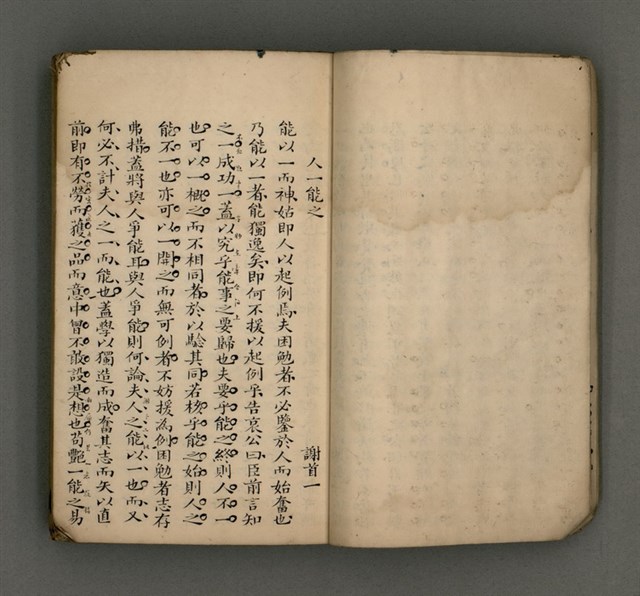 人一能之 謝首一
能以一而神姑即人以起例焉夫困勉者不必鑒於人而始奮也
乃能以一者能獨逸矣即何不援以起例乎告哀公曰臣前言知
之一成功一蓋以究乎能事之要歸也夫要乎能之終則人不一
也可以一概之而不相同者於以驗其同若核乎能之始則人之
能不一也亦可以一開之而無可例者不妨援為例困勉者志存
弗措蓋將與人爭能耳與人爭能則何論夫人之能以一也而又
何必不計夫人之一而能也蓋學以獨造而成奮其志而矢以直
前即有不勞而獲之品而意中曾不敢設是想也茍艷一能之易